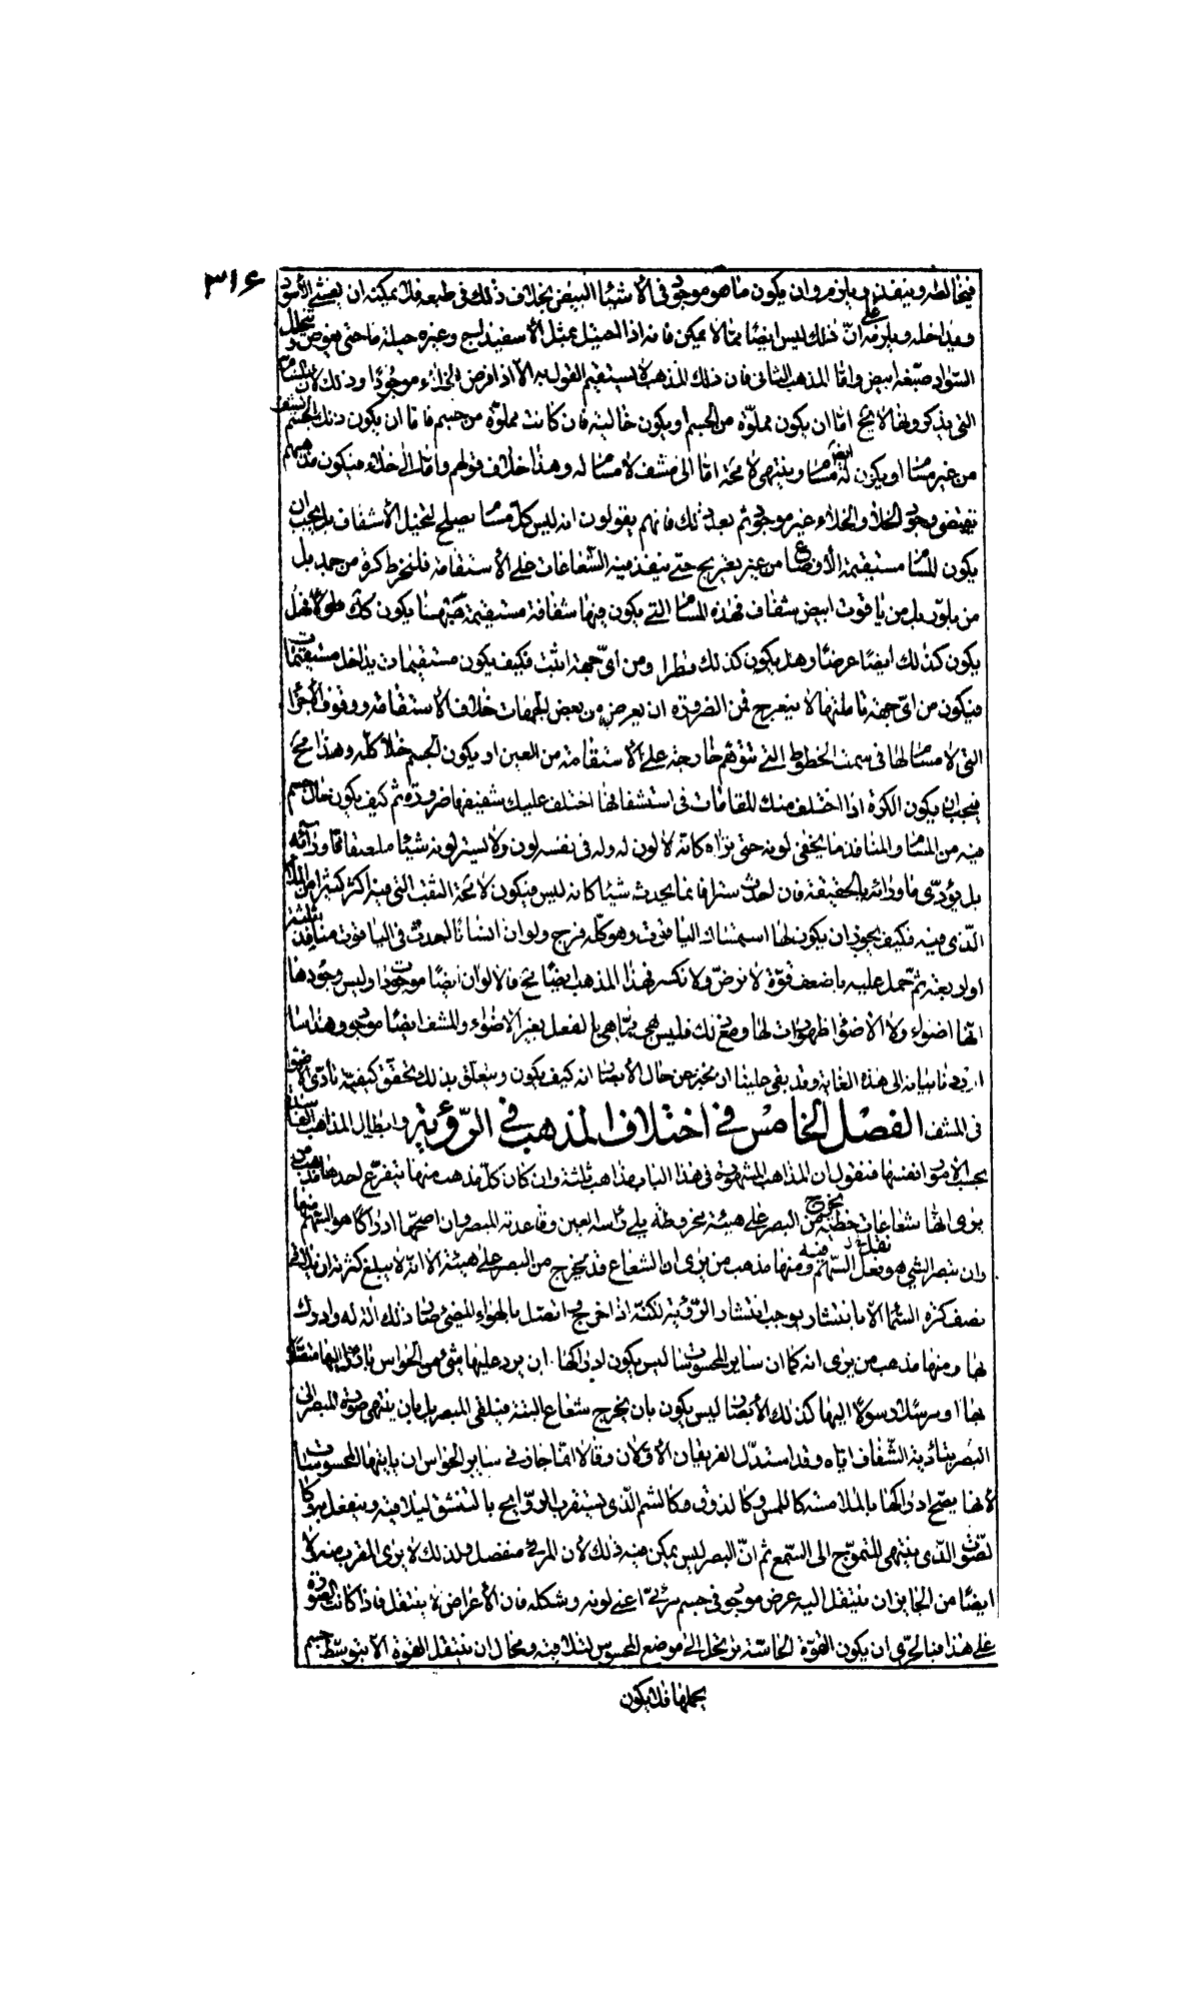 ٣١۶
فيخالطه وينفذه ويلزمه وان يكون ما هو موجود فى الأشياء البيض بخلاف ذلك فى طبعه فلا يمكنه ان يغشى الأسود
ويداخله ويلزمه على انّ ذلك ليس ايضا ممّا لا يمكن فانه اذا احتيل بمثل الأسفيداج وغيره حيلة ما حتى يغوص و يتخلل
السّواد صبّغه ابيض وامّا المذهب الثانى فان ذلك المذهب لا يستقيم القول به الّا اذا فرض الخلاء موجودًا وذلك لان المسام
التى يذكرونها لا يخ امّا ان يكون مملوّة من الجسم او يكون خالية فان كانت مملوّة من جسم فاما ان يكون ذلك الجسم يشف
من غير مسام او يكون له ايضا مسام وينتهى لا محة امّا الى مشف لا مسام له وهذا خلاف قولهم وامّا الى خلاء فيكون مذهبهم
يقتضى وجود الخلاء والخلاء غير موجود ثم بعد ذلك فانهم يقولون انه ليس كلّ مسام يصلح لتخيل الأشفاف بل يجب ان
يكون المسام مستقيمة الأوضاع من غير تعريج حتى ينفذ فيه الشعاعات على الأستقامة فلنخرط كرة من جمد بل
من بلّور بل من ياقوت ابيض شفاف فهذه المسام التى يكون فيها شفافة مستقيمة هبها يكون كذلك طولا فهل
يكون كذلك ايضا عرضا وهل يكون كذلك قطرا ومن اىّ جهة اثبت فكيف يكون مستقيمات يداخل مستقيمات
فيكون من اىّ جهة تاملتها لا ينعرج فمن الضرورة ان يعرض من بعض الجهات خلاف الأستقامة ووقوف الأجزاء
التى لا مسام لها فى سمت الخطوط التى نتوهم خارجة على الأستقامة من العين او يكون الجسم خلاء كله وهذا مح
فيجب ان يكون الكرة اذا اختلف منك المقامات فى استشفافها اختلف عليك شفيفها ضرورة ثم كيف يكون حال جسم
فيه من المسام والمنافذ ما يخفى لونه حتى نراه كانه لا لون له وله فى نفسه لون ولا يستر لونه شيئا مما
بل يؤدّى ما ورائه بالحقيقة فان احدث سترا فانما يحدث شيئا كانه ليس فيكون لا محة الثقب التى فيه اكثر كثيرا من الملاء
الّذى فيه فكيف يجوز ان يكون لها استمساك الياقوت وهو كله فرج ولو ان انسانا احدث فى الياقوت منافذ ثلثة
او اربعة ثم حمل عليه باضعف قوّة لا نرضّ ولا نكسر فهذا المذهب ايضا مح فالالوان ايضا موجودة وليس وجودها
انّها اضواء ولا الأضواء ظهورات لها ومع ذلك فليس هى ممّا هى بالفعل بغير الأضواء والمشف ايضا موجود وهذا ما
اردنا بيانه الى هذه الغاية وقد بقى علينا ان نخبر عن حال الأبصار انه كيف يكون ويتعلق بذلك تحقيق كيفيّة تأدّى الأضواء
فى المشف الفصل الخامس فى اختلاف المذهب فى الرّؤية وابطال المذاهب الفاسدة
بحسب الأمور انفسها فنقول ان المذاهب المشهورة فى هذا الباب مذاهب ثلثة وان كان كلّ مذهب منها يتفرّع احدها مذهب من
يرى انّها شعاعات خطّية يخرج من البصر على هيئة مخروطة يلى رأسه العين وقاعدته المبصر وان اصحّها ادراكا هو السهم منها
وان يبصر الشىء هو نقل السّهم فيه ومنها مذهب من يرى ان الشعاع قد يخرج من البصر على هيئة الا انّه لا يبلغ كثرته ان يلاقى
نصف كرة السّماء الّا بانتشار يوجب انتشار الرّؤية لكنّه اذا خرج واتصل بالهواء المضىء صار ذلك آلة له وادرك
بها ومنها مذهب من يرى انه كما ان ساير المحسوسات ليس يكون ادراكها بان يرد عليها شىء من الحواس بارزا اليها متصلا
بها او مرسلا رسولا اليها كذلك الأبصار ليس يكون بان يخرج شعاع البتة فيلقى المبصر بل بان ينتهى صورة المبصر الى
البصر بتأدية الشّفاف ايّاه وقد استدلّ الفريقان الأوّلان وقالا انّما جاز فى ساير الحواس ان ياتيها المحسوسات
لأنها يصحّ ادراكها بالملامسة كاللمس وكالذوق وكالشم الّذى يستقرب الرّوايح بالتنشق ليلاقيه وينفعل به وكا
لصّوت الّذى ينتهى التموّج الى السّمع ثم انّ البصر ليس يمكن فيه ذلك لأن المرئى منفصل ولذلك لا يرى المقرب منه ولا
ايضا من الجايز ان ينتقل اليه عرض موجود فى جسم مرئى اعنى لونه وشكله فان الأعراض لا ينتقل فاذا كانت الصورة
على هذا فبالحرّى ان يكون القوّة الحاسّة يرتحل الى موضع المحسوس لتلاقيه ومحال ان ينتقل القوة الّا بتوسّط جسم
يحملها فلا يكون